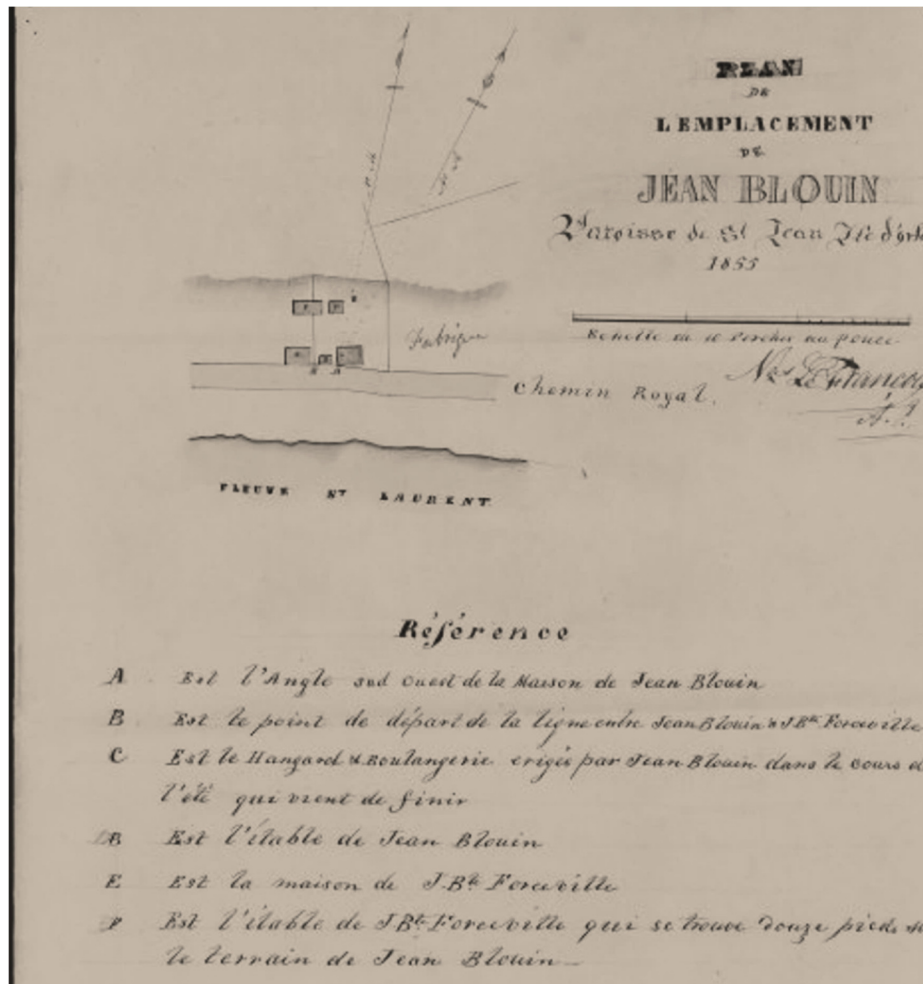 PLAN
DE
L'EMPLACEMENT
DE
JEAN BLOUIN
Paroisse de St Jean Ile d'orl
1855
Echelle de 10 Perches au pouce
Fabrique
Chemin Royal.
FLEUVE ST LAURENT
Référence
A Est l'Angle sud ouest de la Maison de Jean Blouin
B Est le point de départ de la ligne entre Jean Blouin & J Bte Forceville
C Est le Hangard & Boulangerie erigés par Jean Blouin dans le cours d
l'été qui vient de finir
Est l'étable de Jean Blouin
E Est la maison de J. Bte Forceville
F Est l'étable de J Bte Forceville qui se trouve douze pieds
le terrain de Jean Blouin